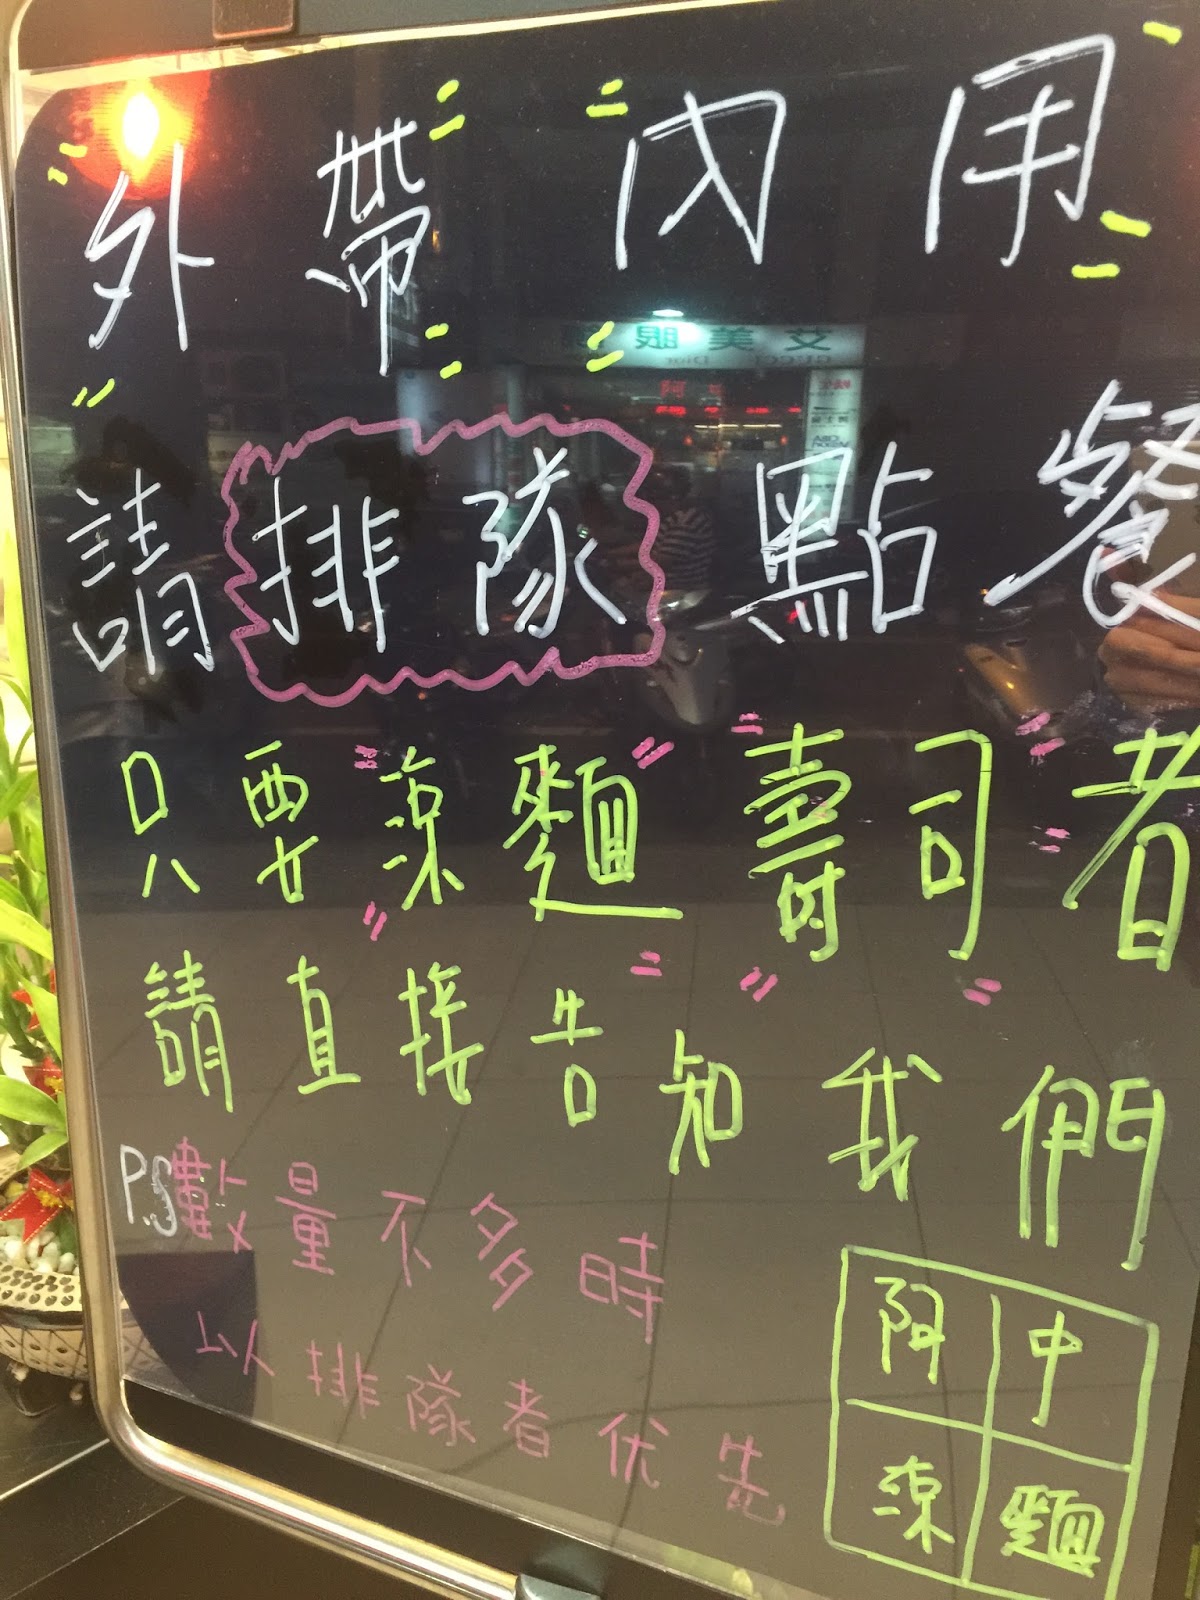 外帶 內用
請排隊點餐
只要涼麵 壽司者
請直接告知我們
P.S數量不多時
以排隊者优先
阿中
涼麵